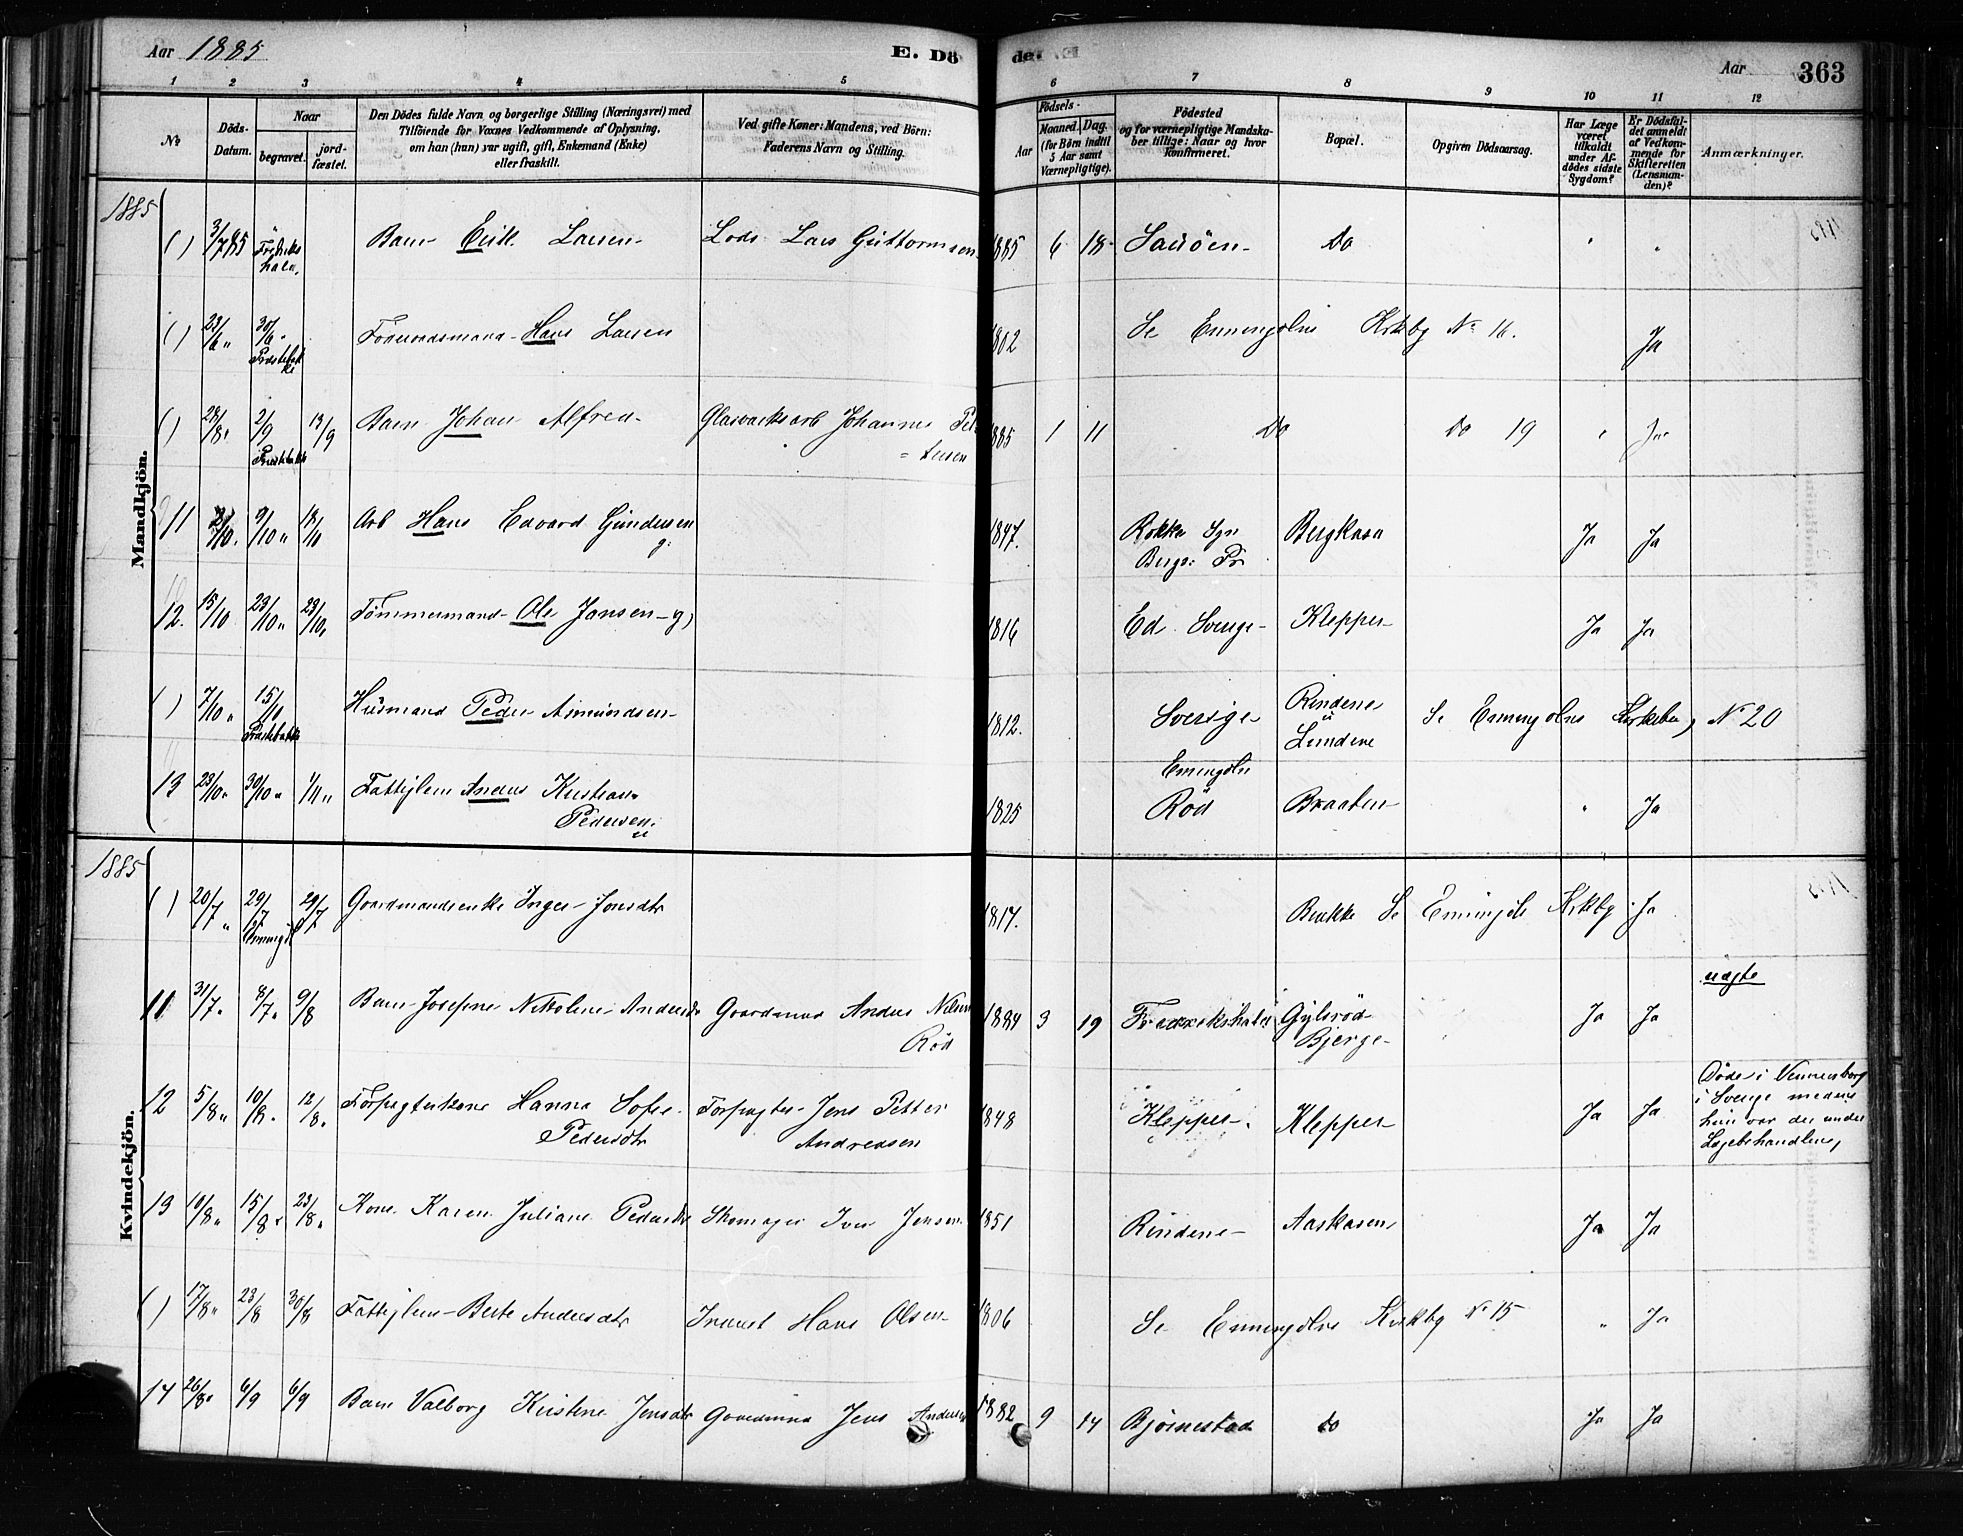 Aar 1885 E. Döde. Aar 363
1 2 3 4 5 6 7 8 9 10 11 12
No
Döds-Datum.
Naar
begravet.
jord-fæstet.
Den Dödes fulde Navn og borgerlige Stilling (Næringsvei) med
Tilföiende for Voxnes Vedkommende af Oplysning,
om han (hun) var ugift, gift, Enkemand (Enke)
eller fraskilt.
Ved gifte Koner: Mandens, ved Börn:
Faderens Navn og Stilling.
Födsels-
Aar
Maaned. Dag.
(for Börn indtil
5 Aar samt
Værnepligtige).
Födested
og for værnepligtige Mandska-
ber tillige: Naar og hvor
Konfirmeret.
Bopæl.
Opgiven Dödsaarsag.
Har Læge
været
tilkaldt
under Af-
dödes sidste
Sygdom?
Er Dödsfal-
det anmeldt
af Vedkom-
mende for
Skifteretten
(Lensman-
den)?
Anmærkninger.
Mandkjön.
1885
( ) 3/7 85 Fredriks hald. Barn Erik Larsen Lods Lars Guttormsen 1885 6 18 Sauöen Do " "
( ) 23/6 " 30/6 " Præstebakke Hans Larsen 1802 Se Enningdalens Kirkbg No 16. Ja
( ) 28/8 " 2/9 Præstebakke 13/9 Barn Johan Alfred Glasværksarb Johannes Pet=
tersen 1885 1 11 Do Do 19 " Ja
11 9/10 " Arb Hans Edvard Gundersen
g: 1847. Rokke Sgn
Bergs Pr Ja Ja
12. 15/10 23/10 " 23/10. Tømmermand Ole Jansen g) 1816 Ed Sverige Klepper Ja Ja
( ) 7/10 " 15/10 Præstebakke Husmand Peder Asmundsen 1812. Sverige Rindene
u
Lundene Se Enningdalns Kirkebog No 20
13 23/10 " 30/10 " 1/11 " Fattiglem Anders Kristian
Pedersen.
u 1825 Enningdaln
Röd Braaten " Ja
Kvindekjön.
1885
( ) 20/7 " 29/7 Enningd 29/7 Gaardmandsenke Inger Jonsdtr 1817. Bakke Se Enningdals Kirkbg Ja
11 31/7 " 8/7 " 9/8 Barn Josefine Nikoline Andersdtr Gaardmand Anders Nilsen
Röd 1884 3 19 Fredrikshald Gylsröd
Bjerge Ja Ja uægte
12 5/8 " 10/8 " 12/8 " Forpagterkone Hanna Sofie
Pedersdtr Forpagter Jens Petter
Andreasen 1848 Klepper Klepper Ja Ja Döde i Vennersborg
i Sverige medens
hun var der under
Lægebehandling
13 10/8 " 15/8 " 23/8 " Kone Karen Juliane Pedersdtr Skomager Iver Jensen 1851 Rindene Aaskasen Ja Ja
( ) 17/8 " 23/8 30/8 Fattiglem Berte Andersdtr Hans Olsen 1806 Se Enningdalns Kirkbg No 15 " Ja
14 26/8 " 6/9 6/9 Barn Valborg Kristine Jensdtr Gaardmand Jens Andersen 1882 9 14 Björnestad do Ja Ja